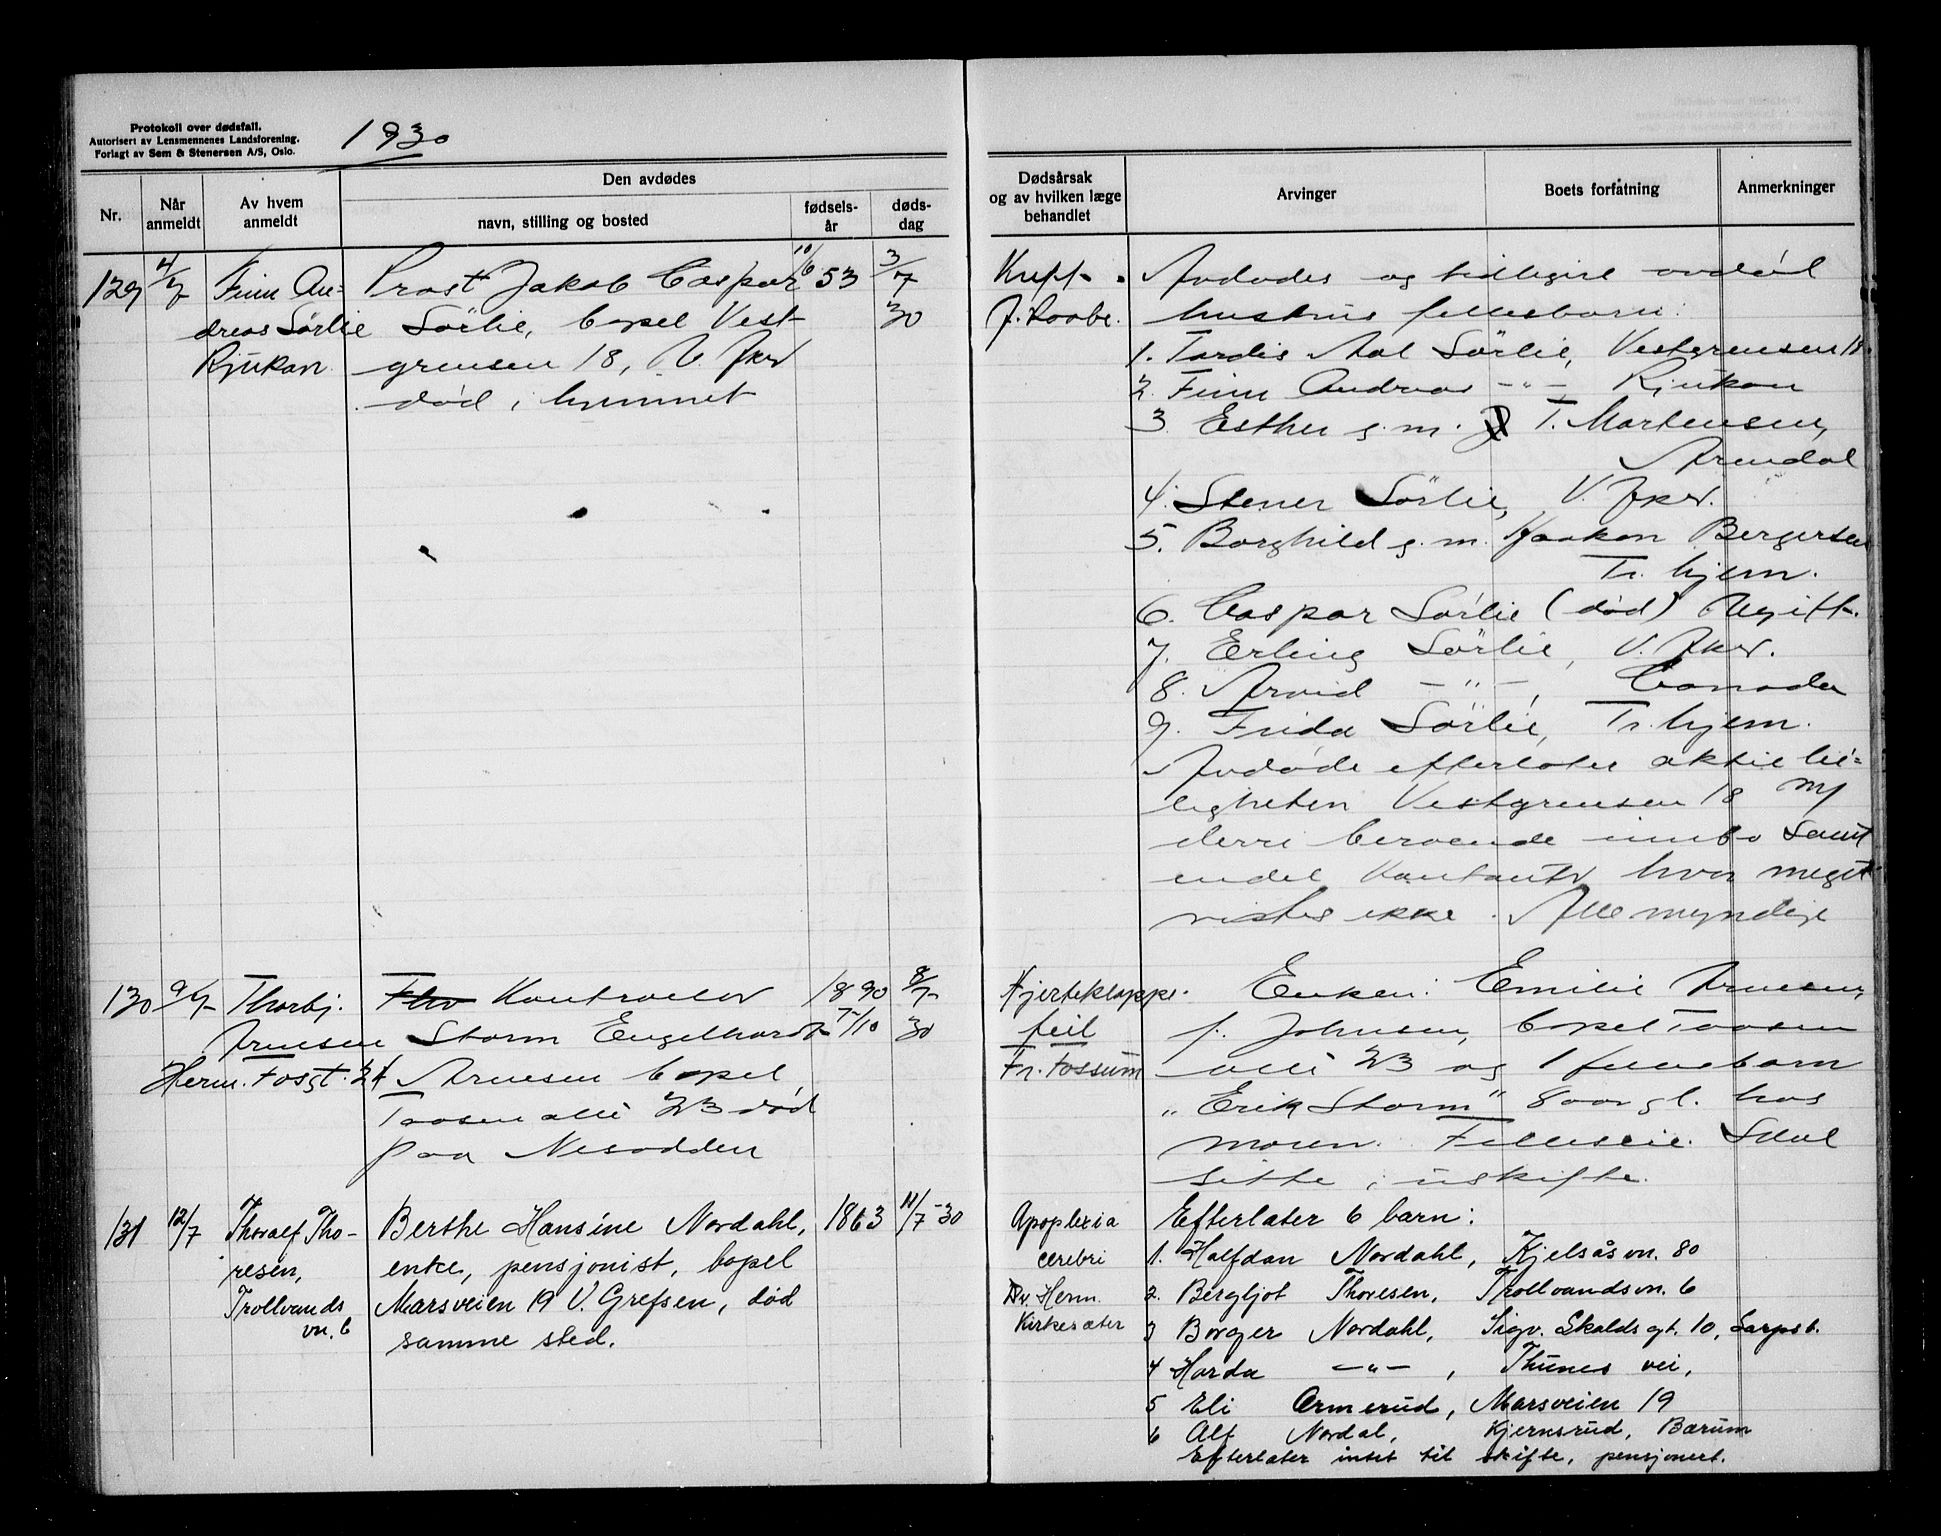 Protokoll over dødsfall.
Autorisert av Lensmennenes Landsforening.
Forlagt av Sem & Stenersen A/S, Oslo.
1930
Nr.
Når anmeldt
Av hvem anmeldt
Den avdødes
navn, stilling og bosted
fødsels-år
døds-dag
Dødsårsak og av hvilken læge behandlet
Arvinger
Boets forfatning
Anmerkninger
129 4/7
Finn An-
dreas Sörlie
Rjukan
Prost Jakob Caspar
Sörlie, bopel Vest-
grensen 18, V. Aker
død i hjemmet
10/6 53
3/7
30
Avdødes og tidligere avdød
hustrus fellesbarn:
1. Tordis Aal Sörlie, Vestgrensen 18.
2. Finn Andreas -"- Rjukan
3. Esther g. m. T. Martensen,
Arendal
4. Stener Sörlie, V. Aker.
5. Borghild g. m. Haakon Bergersen
Tr. hjem.
6. Caspar Sörlie (død) Ugift.
7. Erling Sörlie, V. Aker.
8. Arvid -"-, Canada
9. Frida Sörlie, Tr. hjem.
Avdøde efterlater aktielei-
ligheten Vestgrensen 18 m/
derri beroende innbo samt
endel kontanter hvor meget
vistes ikke. Alle myndige
130 9/7
Thorbj.
Arnesen
Herm. Fosgt. 24
Kontrolør
Storm Engelhardt
Arnesen bopel
Taasen allé 23 død
paa Nesodden
1890
7/10
8/7
30
Hjerteklappe-
feil
Fr. Fossum
Enken: Emilie Arnesen,
f. Johnsen, bopel Taasen
allé 23 og 1 fellesbarn
"Erik Storm" 8 aar gl. hos
moren. Felleseie. Skal
sitte i uskifte.
131 12/7
Thoralf Tho-
resen,
Trollvands
vn. 6
Berthe Hansine Nordahl,
enke, pensjonist, bopel
Marsveien 19 V. Grefsen, død
samme sted.
1863
11/7-30
Apoplexia
cerebri
Dr. Herm.
Kirkesæter
Efterlater 6 barn:
1. Halfdan Nordahl, Kjelsåsvn. 80
2. Bergljot Thoresen, Trollvandsvn. 6
3 Borger Nordahl, Sigv. Skalds gt. 10, Sarpsb.
4 Horda -"-, Thunes vei,
5 Eli Ormerud, Marsveien 19
6 Alf Nordal, Kjernsrud, Bærum
Efterlater intet til skifte, pensjonert.